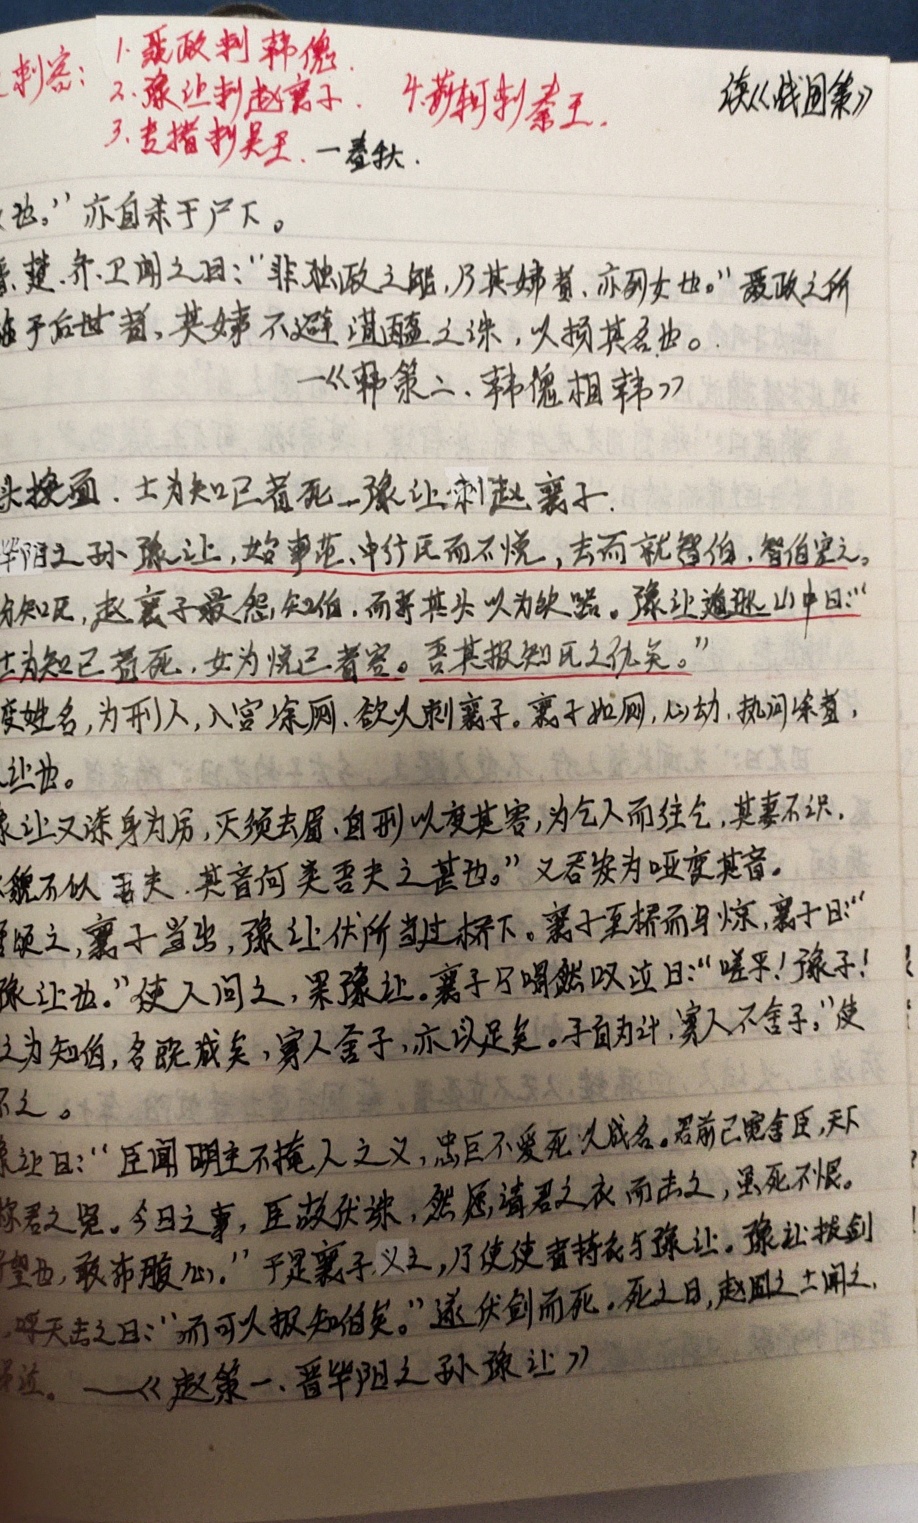 刺客：1.聂政刺韩傀.
2.豫让刺赵襄子. 4.荆轲刺秦王. 读《战国策》
3.专猪刺吴王.一春秋.
也。”亦自杀于尸下。
楚.齐.卫闻之曰：“非独政之能，乃其姊者、亦列女也。”聂政之所
于后世者、其姊不避菹醢之诛，以扬其名也。
—《韩策二、韩傀相韩》
头换面.士为知己者死—豫让刺赵襄子.
毕阳之孙豫让，始事范、中行氏而不悦，去而就智伯，智伯宠之。
知氏，赵襄子最怨知伯，而将其头以为饮器。豫让遁逃山中曰：“
士为知己者死，女为悦己者容。吾其报知氏之仇矣。”
变姓名，为刑人，入宫涂厕、欲以刺襄子。襄子如厕，心动，执问涂者，
让也。
豫让又漆身为厉，灭须去眉、自刑以变其容，为乞人而往乞，其妻不识，
貌不似吾夫.其音何类吾夫之甚也。”又吞炭为哑变其音。
顷之，襄子当出，豫让伏所当过桥下。襄子至桥而马惊，襄子曰：“
豫让也。”使人问之，果豫让。襄子乃喟然叹泣曰：“嗟乎！豫子！
之为知伯，名既成矣，寡人舍子，亦以足矣。子自为计，寡人不舍子。”使
之。
豫让曰：“臣闻明主不掩人之义，忠臣不爱死以成名。君前已宽舍臣，天下
称君之贤。今日之事，臣故伏诛，然愿请君之衣而击之，虽死不恨。
望也，敢布腹心。”于是襄子义之，乃使使者持衣与豫让。豫让拔剑
呼天击之曰：“而可以报知伯矣。”遂伏剑而死。死之日，赵国之士闻之，
泣。——《赵策一、晋毕阳之孙豫让》